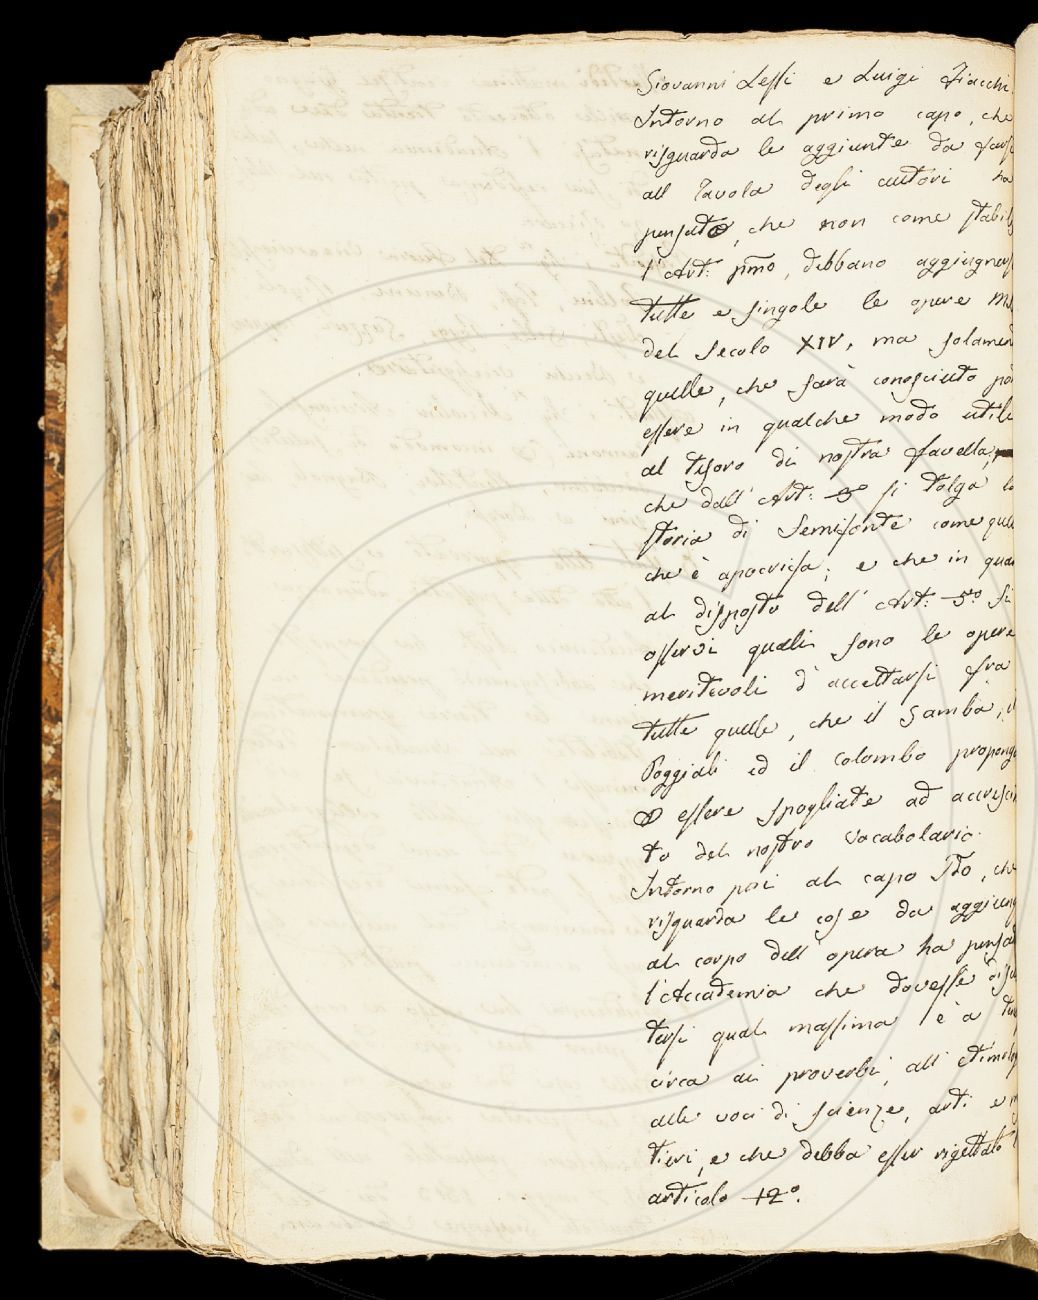 Giovanni Lessi e Luigi Fiacchi.
Intorno al primo capo, che
risguarda le aggiunte da farsi
all Tavola degli autori ha
pensato, che non come stabil
l'Art: pmo, debbano aggiugners
tutte e singole le opere Ms
del Secolo XIV, ma solamen
quelle, che sarà conosciuto po
essere in qualche modo utile
al tesoro di nostra favella;
che dall' Art: 3º si tolga la
storia di Semifonte come quell
che è apocrifa; e che in quan
al disposto dell' Art: 5º si
osservi quali sono le opere
meritevoli d' accettarsi fra
tutte quelle, che il Gamba, il
Poggiali ed il Colombo propong
essere spogliate ad accrescim
to del nostro Vocabolario.
Intorno poi al capo IIdo, che
risguarda le cose da aggiung
al corpo dell' opera ha pensat
l'Accademia che dovesse discu
tersi qual massima è a
circa ai proverbi, all' etimolog
alle voci di scienze, arti e m
tieri, e che debba esser rigettato l'
articolo 12º.